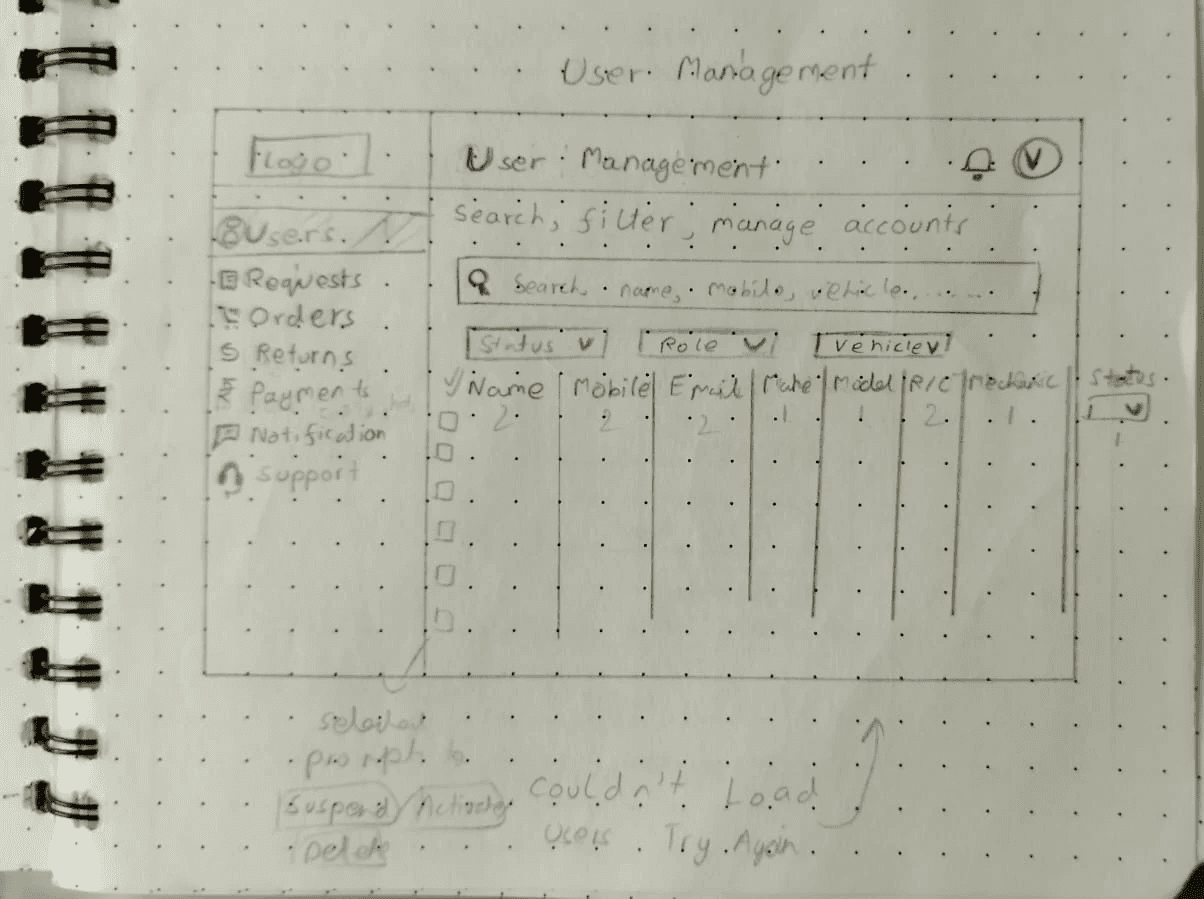 User Management
Logo
User Management
V
Search, filter, manage accounts
Users
Search, name, mobile, vehicle........
Requests
Orders
Returns
Payments
Notification
Support
Status Role Vehicle
Name Mobile Email Make Model R/C Mechanic Status
2 2 2 1 1 2 1 1
selected
prompt to
Suspend Activate
Delete
Couldn't Load
Users Try Again